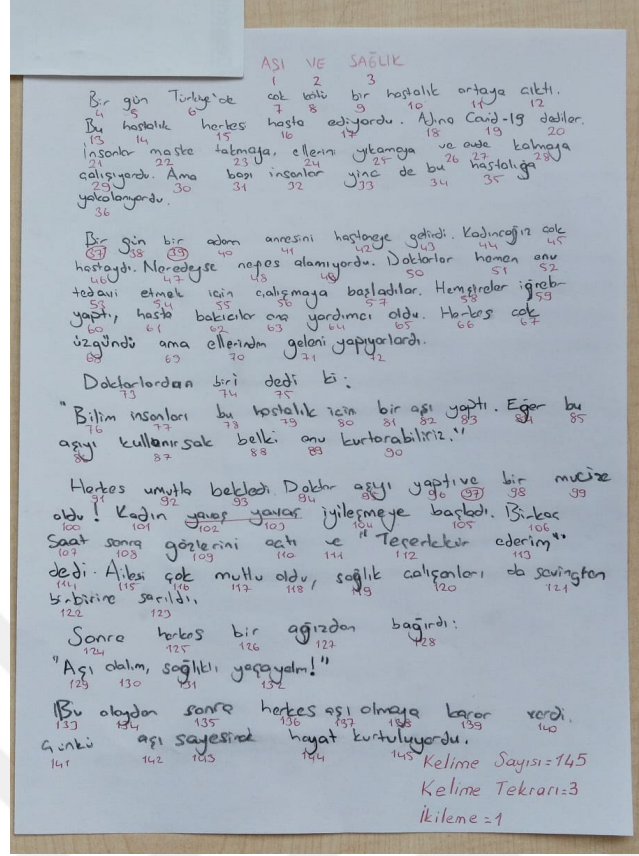 AŞI VE SAĞLIK
1 2 3
Bir gün Türkiye'de çok kötü bir hastalık ortaya çıktı.
4 5 6 7 8 9 10 11 12
Bu hastalık herkes hasta ediyordu. Adına Covid-19 dediler.
13 14 15 16 17 18 19 20
İnsanlar maske takmaya, ellerini yıkamaya ve evde kalmaya
21 22 23 24 25 26 27 28
çalışıyordu. Ama bazı insanlar yine de bu hastalığa
29 30 31 32 33 34 35
yakalanıyordu.
36
Bir gün bir adam annesini hastaneye getirdi. Kadıncağız çok
37 38 39 40 41 42 43 44 45
hastaydı. Neredeyse nefes alamıyordu. Doktorlar hemen onu
46 47 48 49 50 51 52
tedavi etmek için çalışmaya başladılar. Hemşireler iğneler
53 54 55 56 57 58 59
yaptı, hasta bakıcılar ona yardımcı oldu. Herkes çok
60 61 62 63 64 65 66 67
üzgündü ama ellerinden geleni yapıyorlardı.
68 69 70 71 72
Doktorlardan biri dedi ki:
73 74 75
"Bilim insanları bu hastalık için bir aşı yaptı. Eğer bu
76 77 78 79 80 81 82 83 84 85
aşıyı kullanırsak belki onu kurtarabiliriz."
86 87 88 89 90
Herkes umutla bekledi. Doktor aşıyı yaptı ve bir mucize
91 92 93 94 95 96 97 98 99
oldu! Kadın yavaş yavaş iyileşmeye başladı. Birkaç
100 101 102 103 104 105 106
Saat sonra gözlerini açtı ve "Teşerekkür ederim"
107 108 109 110 111 112 113
dedi. Ailesi çok mutlu oldu, sağlık çalışanları da sevinçten
114 115 116 117 118 119 120 121
birbirine sarıldı.
122 123
Sonra herkes bir ağızdan bağırdı:
124 125 126 127 128
"Aşı olalım, sağlıklı yaşayalım!"
129 130 131 132
Bu olaydan sonra herkes aşı olmaya karar verdi.
133 134 135 136 137 138 139 140
Çünkü aşı sayesinde hayat kurtuluyordu.
141 142 143 144 145
Kelime Sayısı=145
Kelime Tekrarı=3
İkileme=1